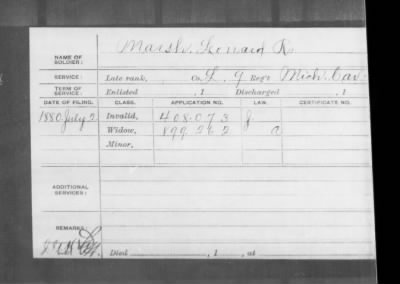 NAME OF SOLDIER: Marsh, Leonard R.
SERVICE: Late rank, Co. L. 9 Reg't Mich. Cav.
TERM OF SERVICE: Enlisted , 1 Discharged , 1
DATE OF FILING. CLASS. APPLICATION NO. LAW. CERTIFICATE NO.
1880 July 2 Invalid, 408.073
Widow, 899.262
Minor,
ADDITIONAL SERVICES:
REMARKS:
Died , 1 , at